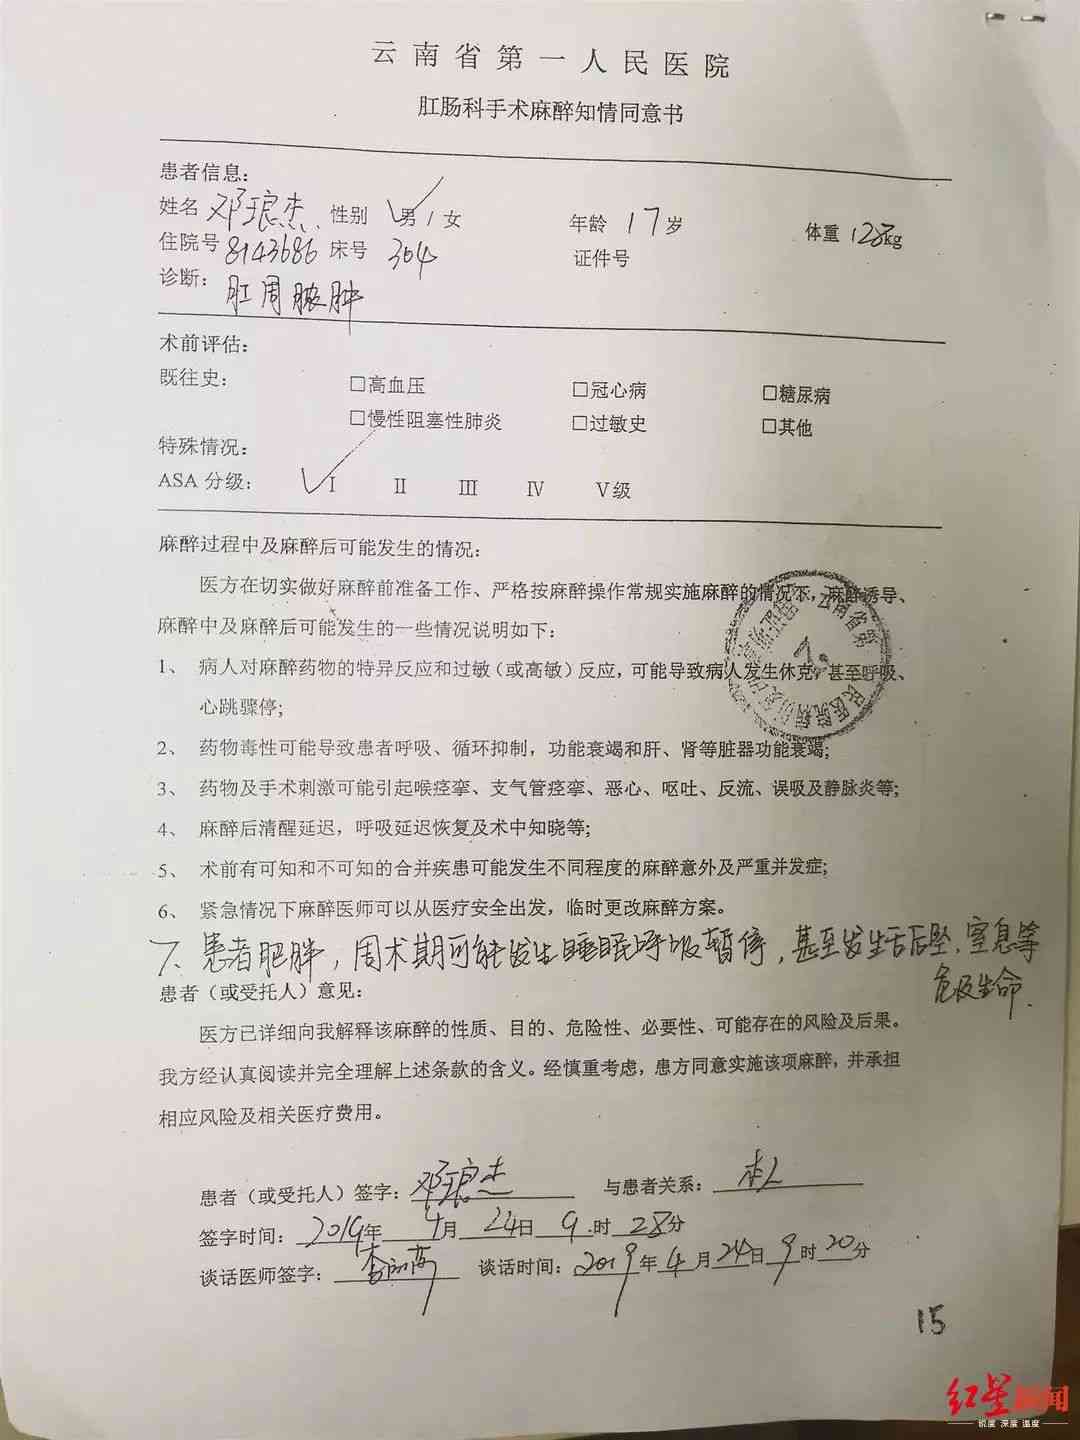 云南省第一人民医院
肛肠科手术麻醉知情同意书
患者信息：
姓名 邓琅杰 性别 ✓男/女 年龄 17岁 体重 128kg
住院号 8143686 床号 304 证件号
诊断：肛周脓肿
术前评估：
既往史： □高血压 □冠心病 □糖尿病
□慢性阻塞性肺炎 □过敏史 □其他
特殊情况：
ASA 分级： ✓Ⅰ Ⅱ Ⅲ Ⅳ Ⅴ级
麻醉过程中及麻醉后可能发生的情况：
医方在切实做好麻醉前准备工作、严格按麻醉操作常规实施麻醉的情况下，麻醉诱导、
麻醉中及麻醉后可能发生的一些情况说明如下：
1、 病人对麻醉药物的特异反应和过敏（或高敏）反应，可能导致病人发生休克，甚至呼吸、
心跳骤停；
2、 药物毒性可能导致患者呼吸、循环抑制，功能衰竭和肝、肾等脏器功能衰竭；
3、 药物及手术刺激可能引起喉痉挛、支气管痉挛、恶心、呕吐、反流、误吸及静脉炎等；
4、 麻醉后清醒延迟，呼吸延迟恢复及术中知晓等；
5、 术前有可知和不可知的合并疾患可能发生不同程度的麻醉意外及严重并发症；
6、 紧急情况下麻醉医师可以从医疗安全出发，临时更改麻醉方案。
7、患者肥胖，周术期可能发生睡眠呼吸暂停，甚至发生舌后坠、窒息等
危及生命.
患者（或受托人）意见：
医方已详细向我解释该麻醉的性质、目的、危险性、必要性、可能存在的风险及后果。
我方经认真阅读并完全理解上述条款的含义。经慎重考虑，患方同意实施该项麻醉，并承担
相应风险及相关医疗费用。
患者（或受托人）签字：邓琅杰 与患者关系：本人
签字时间：2019年4月24日9时28分
谈话医师签字： 谈话时间：2019年4月24日9时20分
15
红星新闻
锐度 深度 温度